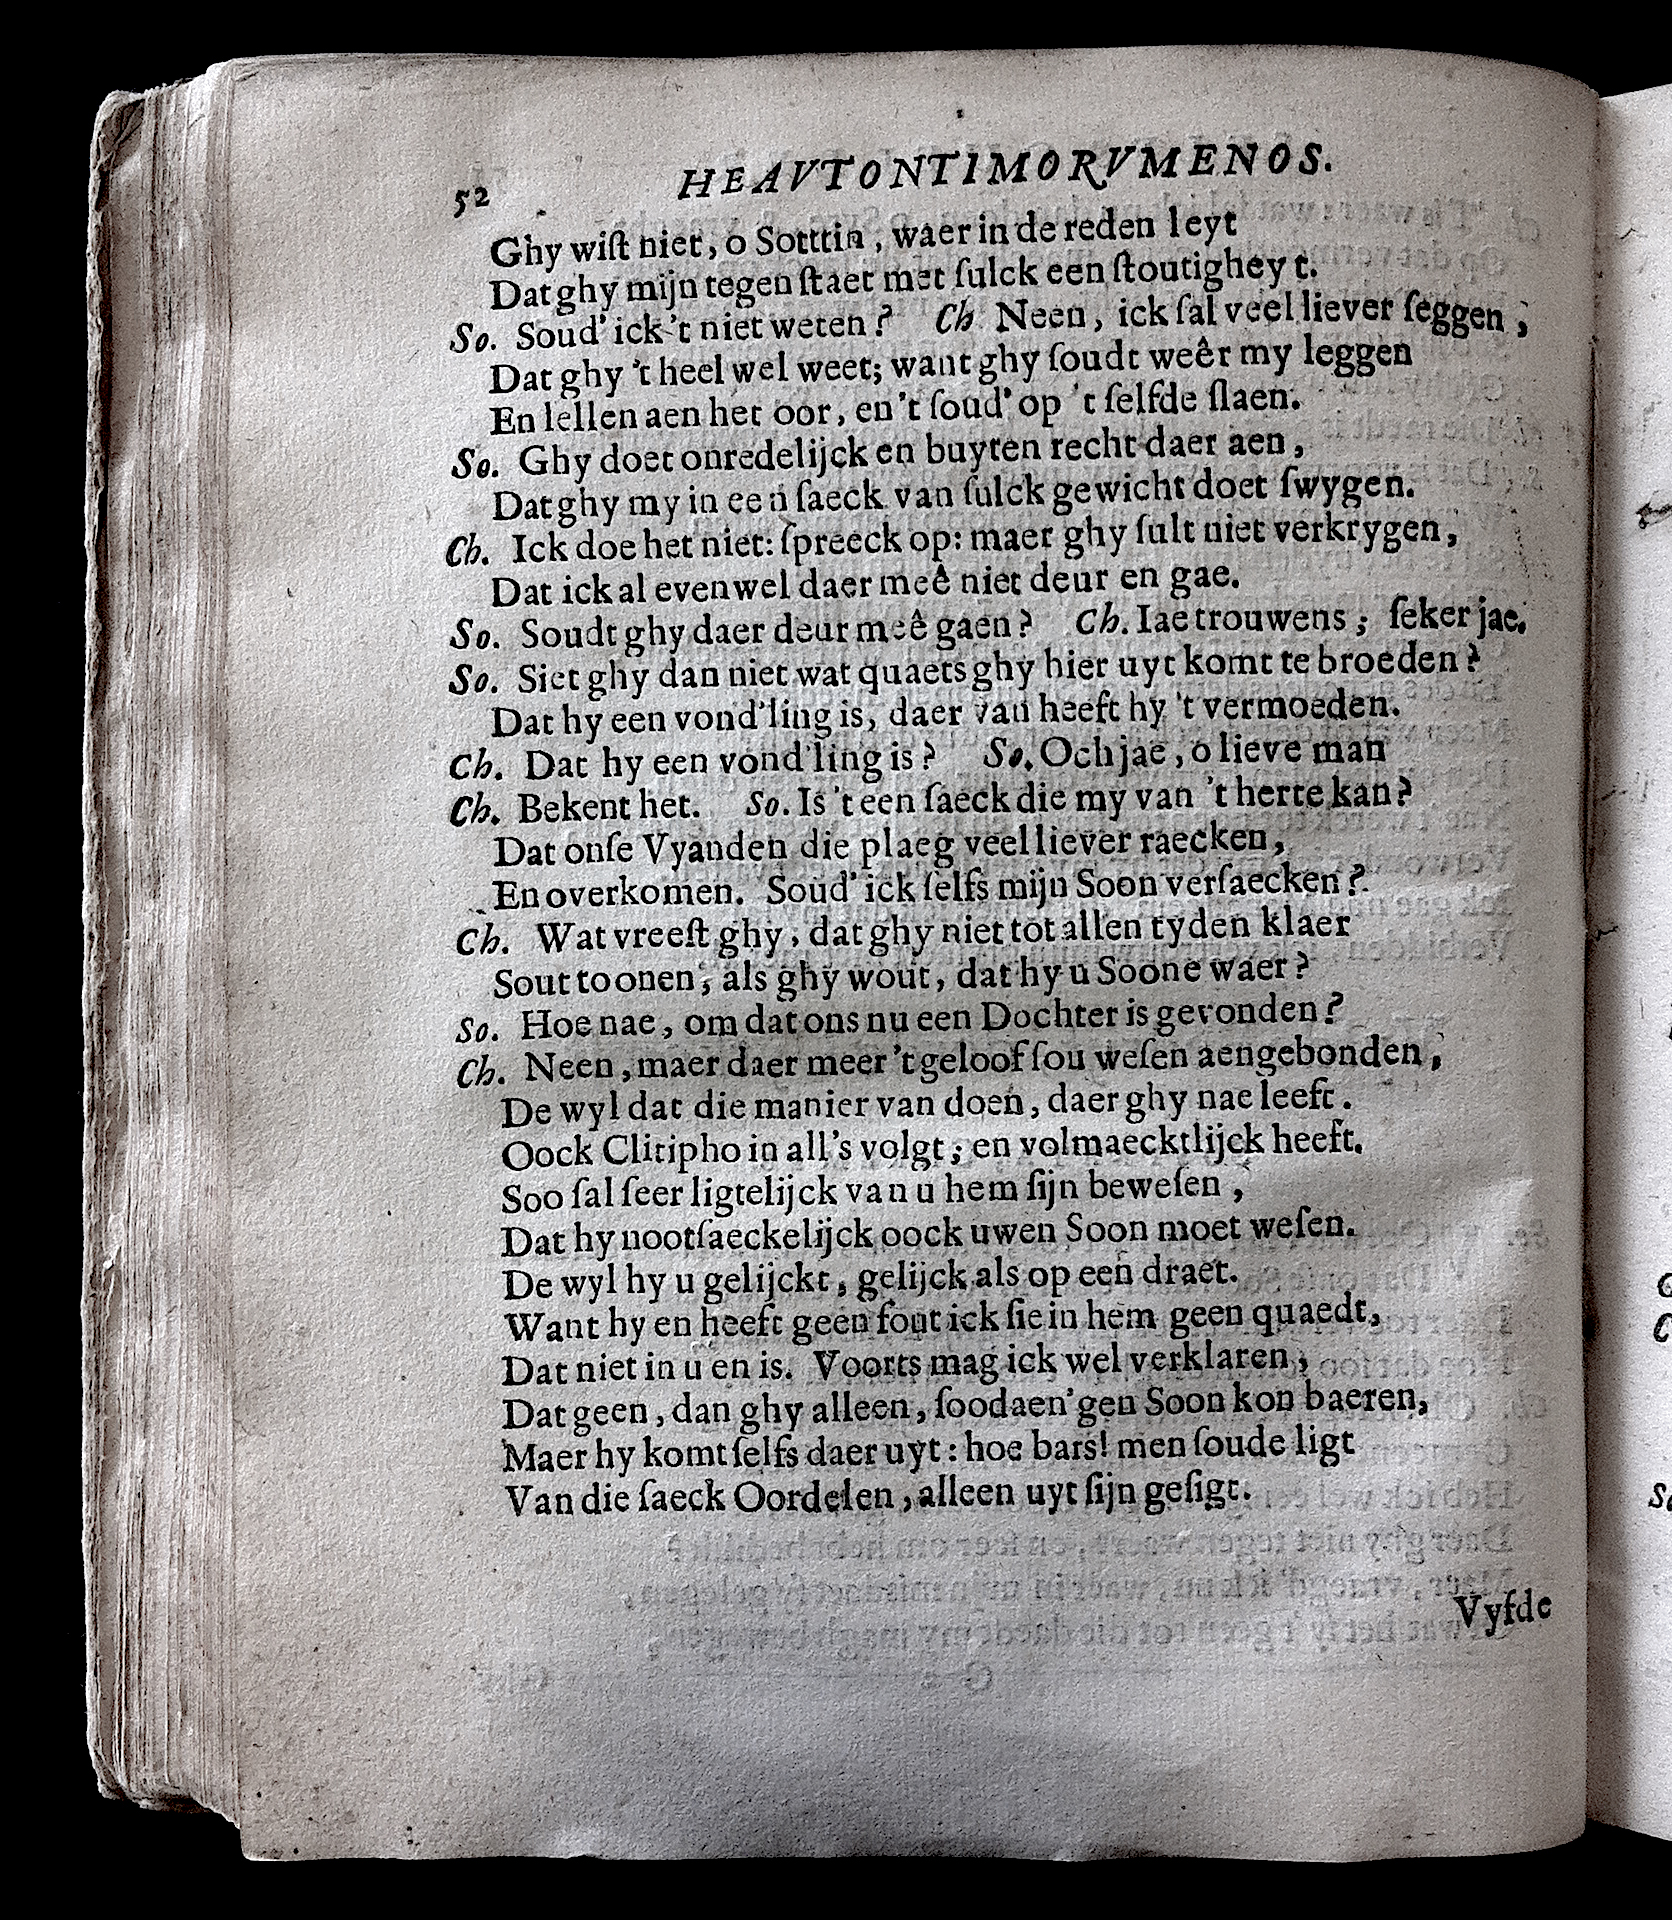 52 HEAVTONTIMORVMENOS.
Ghy wiſt niet, o Sotttin, waer in de reden leyt
Dat ghy mijn tegen ſtaet met ſulck een ſtoutigheyt.
So. Soud' ick 't niet weten? Ch Neen, ick ſal veel liever ſeggen,
Dat ghy 't heel wel weet; want ghy ſoudt weêr my leggen
En lellen aen het oor, en 't ſoud' op 't ſelfde ſlaen.
So. Ghy doet onredelijck en buyten recht daer aen,
Dat ghy my in een ſaeck van ſulck gewicht doet ſwygen.
Ch. Ick doe het niet: ſpreeck op: maer ghy ſult niet verkrygen,
Dat ick al evenwel daer meê niet deur en gae.
So. Soudt ghy daer deur meê gaen? Ch. Iae trouwens; ſeker jae.
So. Siet ghy dan niet wat quaets ghy hier uyt komt te broeden?
Dat hy een vond'ling is, daer van heeft hy 't vermoeden.
Ch. Dat hy een vond'ling is? So. Och jae, o lieve man
Ch. Bekent het. So. Is 't een ſaeck die my van 't herte kan?
Dat onſe Vyanden die plaeg veel liever raecken,
En overkomen. Soud' ick ſelfs mijn Soon verſaecken?
Ch. Wat vreeſt ghy, dat ghy niet tot allen tyden klaer
Sout toonen, als ghy wout, dat hy u Soone waer?
So. Hoe nae, om dat ons nu een Dochter is gevonden?
Ch. Neen, maer daer meer 't geloof ſou weſen aengebonden,
De wyl dat die manier van doen, daer ghy nae leeft.
Oock Clitipho in all's volgt; en volmaecktlijck heeft.
Soo ſal ſeer ligtelijck van u hem ſijn beweſen,
Dat hy nootſaeckelijck oock uwen Soon moet weſen.
De wyl hy u gelijckt, gelijck als op een draet.
Want hy en heeft geen fout ick ſie in hem geen quaedt,
Dat niet in u en is. Voorts mag ick wel verklaren,
Dat geen, dan ghy alleen, ſoodaen'gen Soon kon baeren,
Maer hy komt ſelfs daer uyt: hoe bars! men ſoude ligt
Van die ſaeck Oordelen, alleen uyt ſijn geſigt.
Vyfde